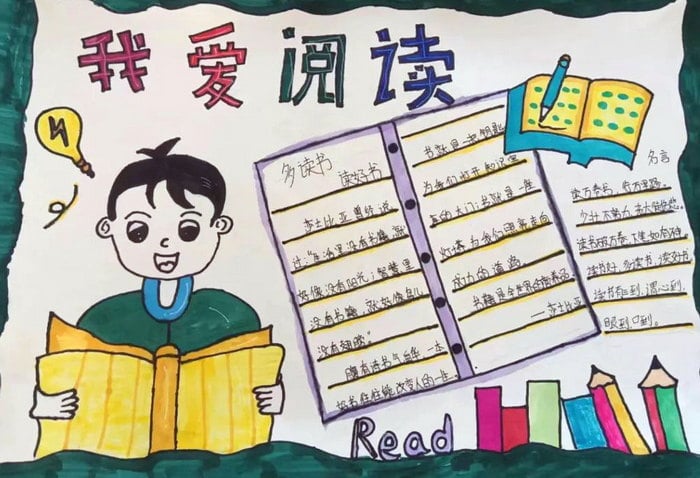 我爱阅读
多读书
读好书
莎士比亚曾经说
过:"生活里没有书籍,就
好像没有阳光;智慧里
没有书籍,就好像鸟儿
没有翅膀"
腹有诗书气自华,一本
好书往往能改变人的一生
书就是一把钥匙
为我们打开知识宝
库的大门;书就是一座
灯塔为我们照亮走向
成功的道路。
书籍是全世界的营养品
——莎士比亚
名言
读万卷书,行万里路。
少壮不努力,老大徒伤悲。
读书破万卷,下笔如有神。
读书好,多读书,读好书
读书有三到,谓心到、
眼到、口到。
Read